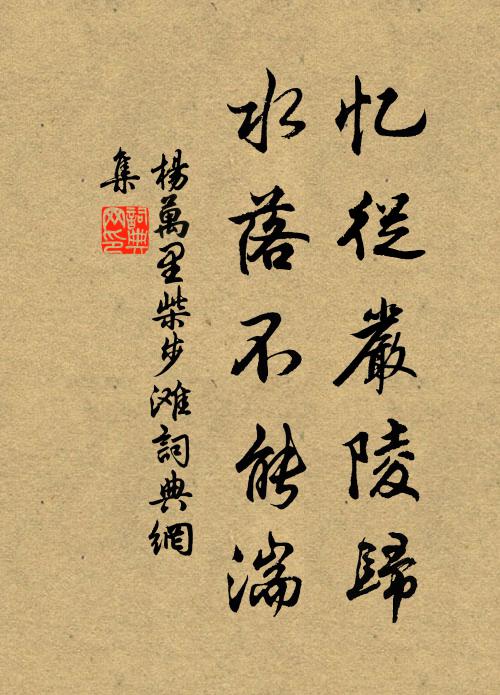 忆從嚴陵歸
水落不能湍
楊萬里柴步滩詞典網
集
詞典
网印